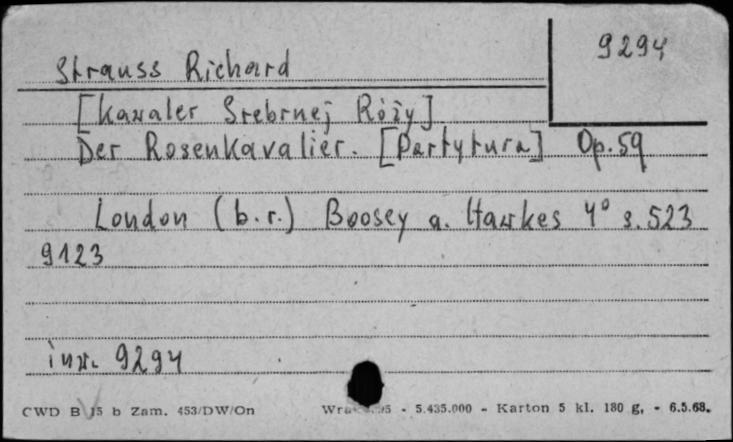 9294
Strauss Richard
[Kawaler Srebrnej Róży]
Der Rosenkavalier. [Partytura] Op. 59
London (b.r.) Boosey a. Hawkes 4° s. 523
9123
inw. 9294
CWD B 15 b Zam. 453/DW/On - 5.435.000 - Karton 5 kl. 180 g. - 6.5.68.